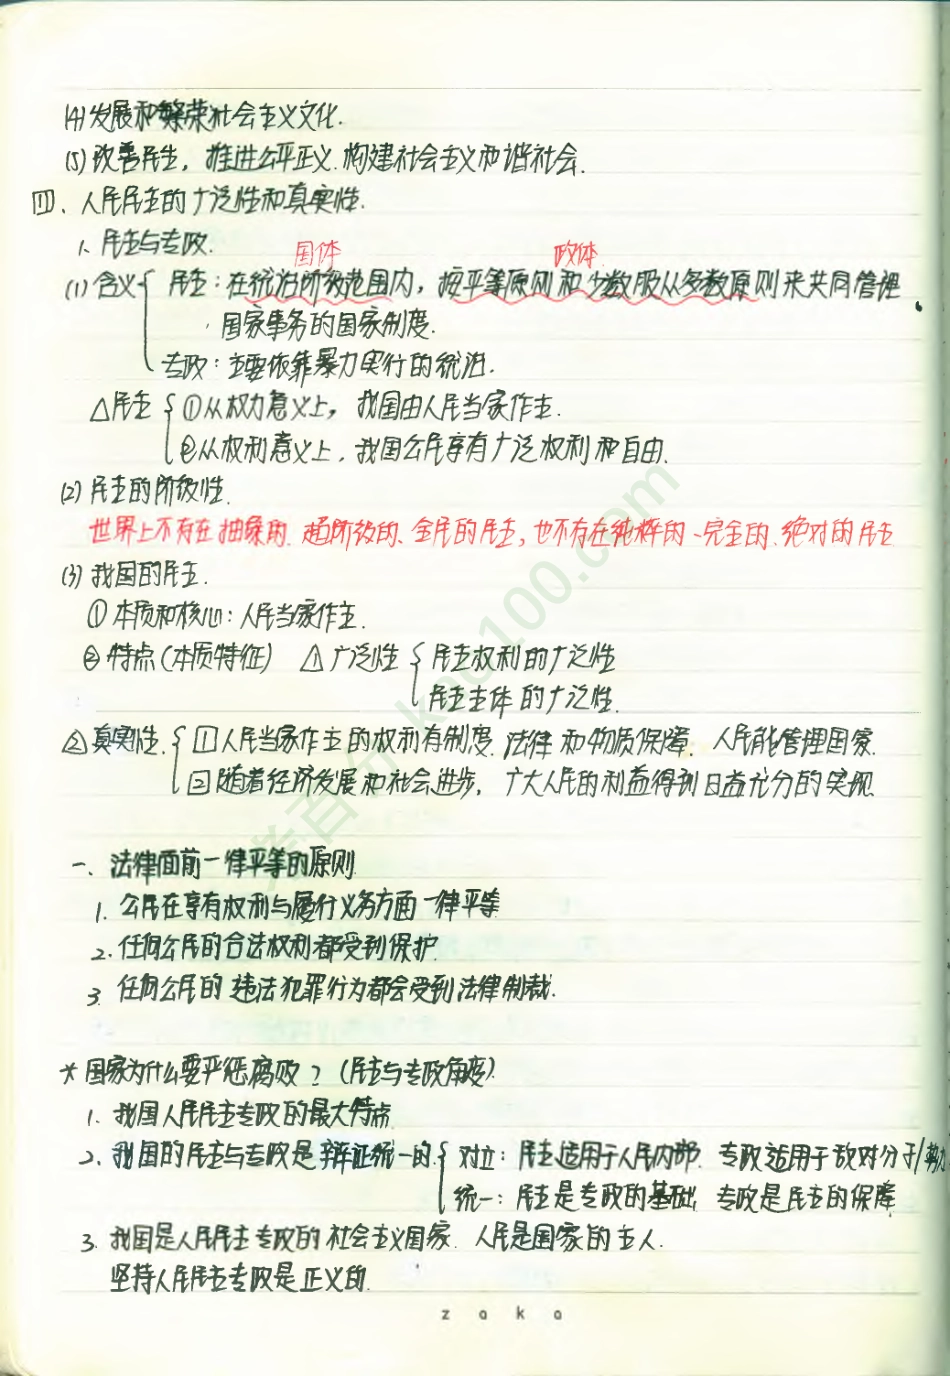 (4)发展和繁荣社会主义文化.
(5)改善民生，推进公平正义.构建社会主义和谐社会.
四、人民民主的广泛性和真实性.
1、民主与专政.
国体 政体
(1)含义{ 民主：在统治阶级范围内，按平等原则和少数服从多数原则来共同管理
国家事务的国家制度.
专政：主要依靠暴力实行的统治.
△民主{ ①从权力意义上，我国由人民当家作主.
②从权利意义上，我国公民享有广泛权利和自由.
(2)民主的阶级性.
世界上不存在抽象的、超阶级的、全民的民主，也不存在纯粹的、完全的、绝对的民主
(3)我国的民主.
①本质和核心：人民当家作主.
②特点(本质特征) △广泛性{ 民主权利的广泛性
民主主体的广泛性.
△真实性.{ ①人民当家作主的权利有制度、法律和物质保障、人民能管理国家.
②随着经济发展和社会进步，广大人民的利益得到日益充分的实现.
一、法律面前一律平等的原则.
1.公民在享有权利与履行义务方面一律平等
2.任何公民的合法权利都受到保护.
3.任何公民的违法犯罪行为都会受到法律制裁.
*国家为什么要严惩腐败？(民主与专政角度).
1.我国人民民主专政的最大特点
2.我国的民主与专政是辩证统一的.{ 对立：民主适用于人民内部、专政适用于敌对分子/势力
统一：民主是专政的基础，专政是民主的保障
3.我国是人民民主专政的社会主义国家.人民是国家的主人.
坚持人民民主专政是正义的.
zaka
考百分 kao100.com